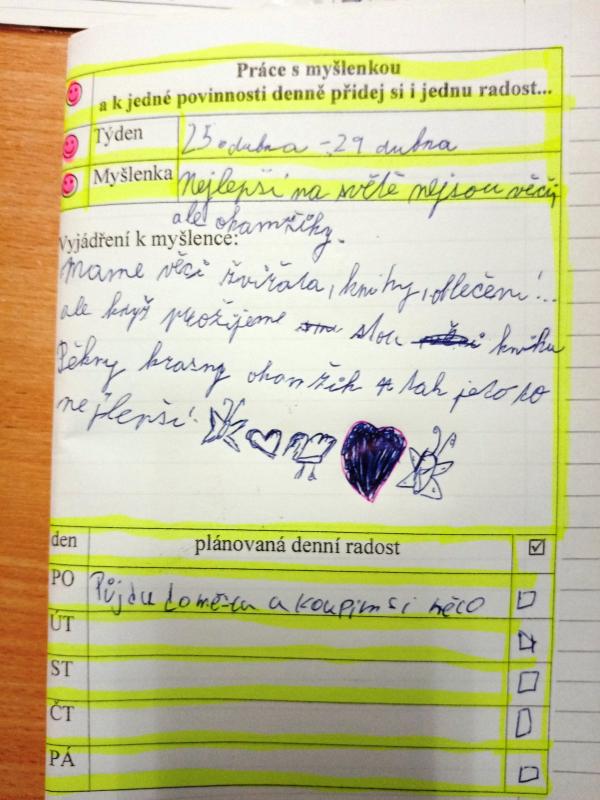 Práce s myšlenkou
a k jedné povinnosti denně přidej si i jednu radost...
Týden 25. dubna - 29 dubna
Myšlenka Nejlepší na světě nejsou věci,
ale okamžiky.
Vyjádření k myšlence:
Mame věci zvířata, knihy, oblečení!..
ale když prožijeme knihu
Pěkny krasny okamžik tak je to to
nejlepší!
den plánovaná denní radost
PO Půjdu a koupim si něco
ÚT
ST
ČT
PÁ